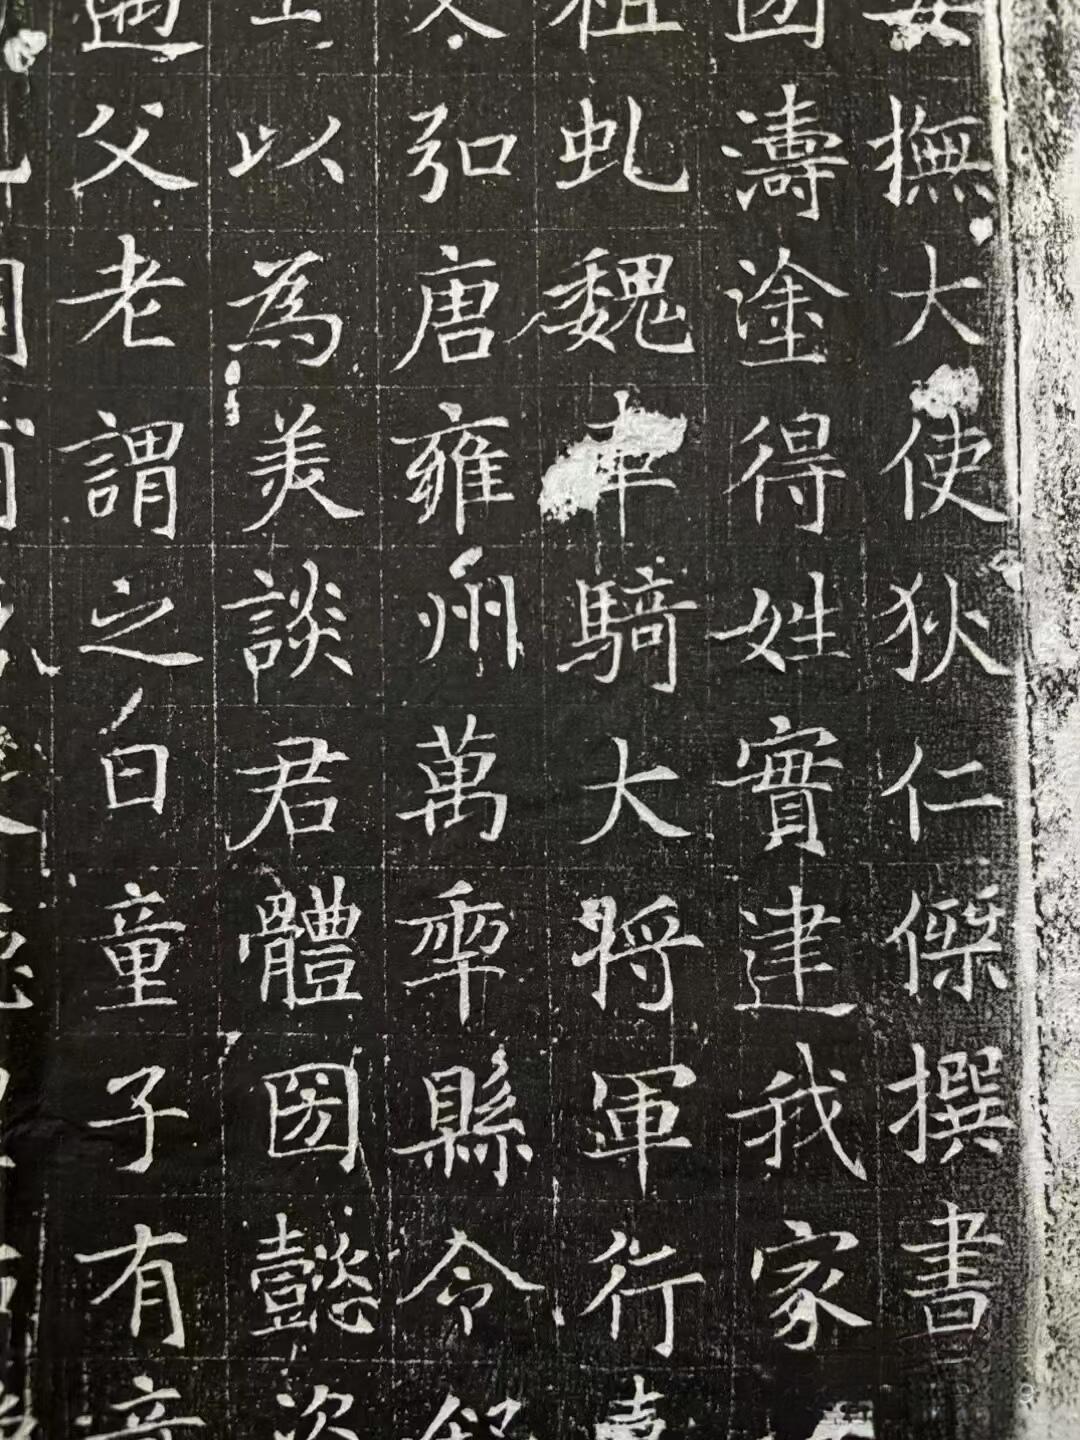 撫大使狄仁傑撰書
因濤塗得姓實建我家
祖虬魏車騎大將軍行臺
父弘唐雍州萬𠡦縣令
以為美談君體圀懿姿
過父老謂之曰童子有音